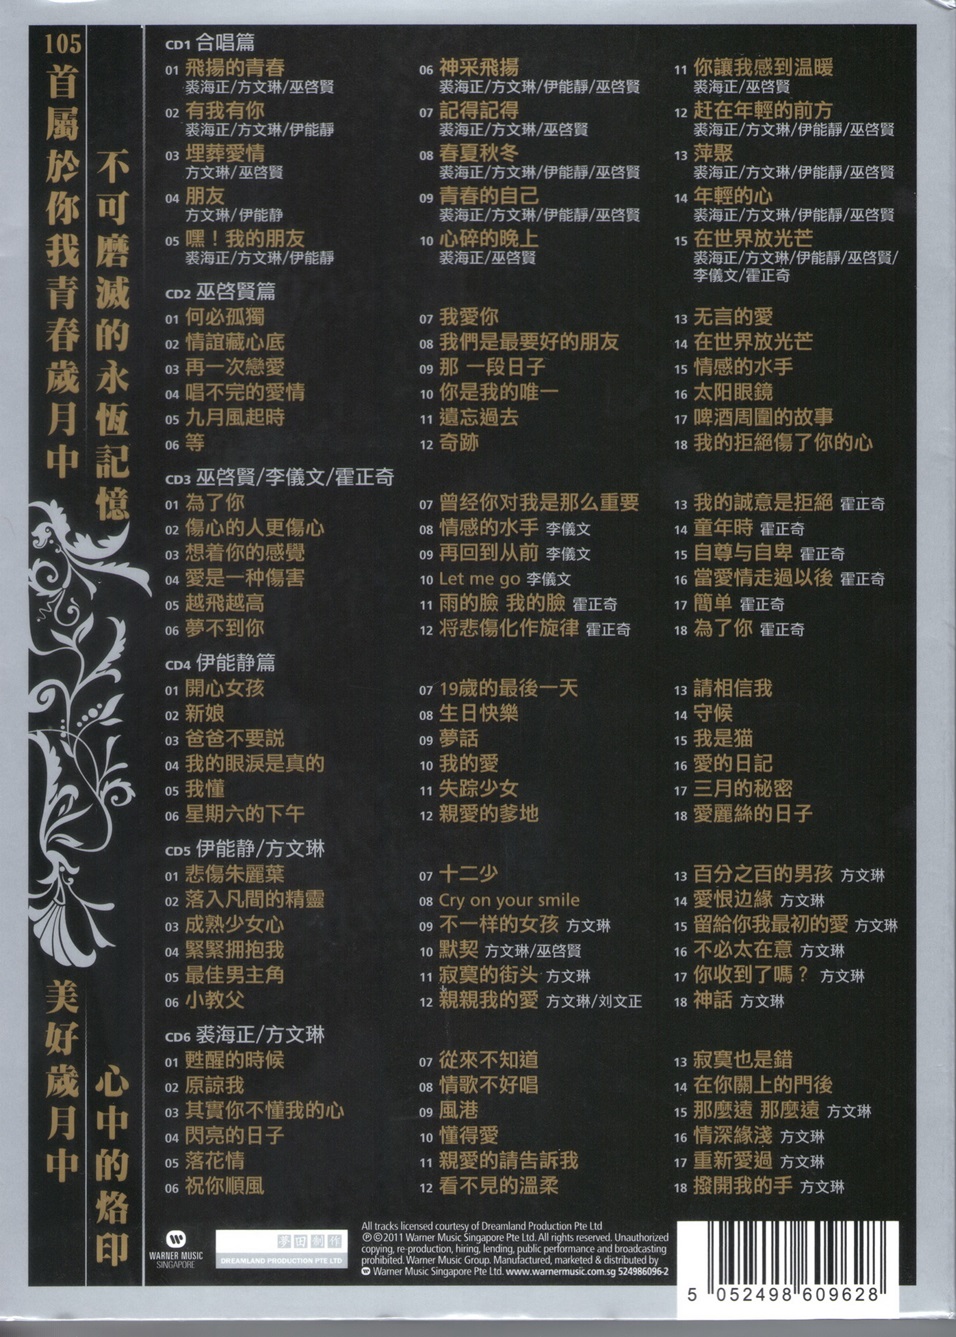 105首屬於你我青春歲月中
美好歲月中
不可磨滅的永恆記憶
心中的烙印
CD1 合唱篇
01 飛揚的青春
裘海正/方文琳/巫啓賢
02 有我有你
裘海正/方文琳/伊能靜
03 埋葬愛情
方文琳/巫啓賢
04 朋友
方文琳/伊能静
05 嘿！我的朋友
裘海正/方文琳/伊能靜
06 神采飛揚
裘海正/方文琳/伊能靜/巫啓賢
07 記得記得
裘海正/方文琳/巫啓賢
08 春夏秋冬
裘海正/方文琳/伊能靜/巫啓賢
09 青春的自己
裘海正/方文琳/伊能靜/巫啓賢
10 心碎的晚上
裘海正/巫啓賢
11 你讓我感到温暖
裘海正/巫啓賢
12 赶在年輕的前方
裘海正/方文琳/伊能靜/巫啓賢
13 萍聚
裘海正/方文琳/伊能靜/巫啓賢
14 年輕的心
裘海正/方文琳/伊能靜/巫啓賢
15 在世界放光芒
裘海正/方文琳/伊能靜/巫啓賢/
李儀文/霍正奇
CD2 巫啓賢篇
01 何必孤獨
02 情誼藏心底
03 再一次戀愛
04 唱不完的愛情
05 九月風起時
06 等
07 我愛你
08 我們是最要好的朋友
09 那 一段日子
10 你是我的唯一
11 遺忘過去
12 奇跡
13 无言的愛
14 在世界放光芒
15 情感的水手
16 太阳眼鏡
17 啤酒周圍的故事
18 我的拒絕傷了你的心
CD3 巫啓賢/李儀文/霍正奇
01 為了你
02 傷心的人更傷心
03 想着你的感覺
04 愛是一种傷害
05 越飛越高
06 夢不到你
07 曾经你对我是那么重要
08 情感的水手 李儀文
09 再回到从前 李儀文
10 Let me go 李儀文
11 雨的臉 我的臉 霍正奇
12 将悲傷化作旋律 霍正奇
13 我的誠意是拒絕 霍正奇
14 童年時 霍正奇
15 自尊与自卑 霍正奇
16 當愛情走過以後 霍正奇
17 簡单 霍正奇
18 為了你 霍正奇
CD4 伊能静篇
01 開心女孩
02 新娘
03 爸爸不要説
04 我的眼淚是真的
05 我懂
06 星期六的下午
07 19歲的最後一天
08 生日快樂
09 夢話
10 我的愛
11 失踪少女
12 親愛的爹地
13 請相信我
14 守候
15 我是猫
16 愛的日記
17 三月的秘密
18 愛麗絲的日子
CD5 伊能静/方文琳
01 悲傷朱麗葉
02 落入凡間的精靈
03 成熟少女心
04 緊緊拥抱我
05 最佳男主角
06 小教父
07 十二少
08 Cry on your smile
09 不一样的女孩 方文琳
10 默契 方文琳/巫啓賢
11 寂寞的街头 方文琳
12 親親我的愛 方文琳/刘文正
13 百分之百的男孩 方文琳
14 愛恨边緣 方文琳
15 留給你我最初的愛 方文琳
16 不必太在意 方文琳
17 你收到了嗎？ 方文琳
18 神話 方文琳
CD6 裘海正/方文琳
01 甦醒的時候
02 原諒我
03 其實你不懂我的心
04 閃亮的日子
05 落花情
06 祝你順風
07 從來不知道
08 情歌不好唱
09 風港
10 懂得愛
11 親愛的請告訴我
12 看不見的温柔
13 寂寞也是錯
14 在你關上的門後
15 那麼遠 那麼遠 方文琳
16 情深緣淺 方文琳
17 重新愛過 方文琳
18 撥開我的手 方文琳
WARNER MUSIC
SINGAPORE
夢田制作
DREAMLAND PRODUCTION PTE LTD
All tracks licensed courtesy of Dreamland Production Pte Ltd
℗ ©2011 Warner Music Singapore Pte Ltd. All rights reserved. Unauthorized
copying, re-production, hiring, lending, public performance and broadcasting
prohibited. Warner Music Group. Manufactured, marketed & distributed by
Warner Music Singapore Pte Ltd. www.warnermusic.com.sg 524986096-2
5 052498 609628